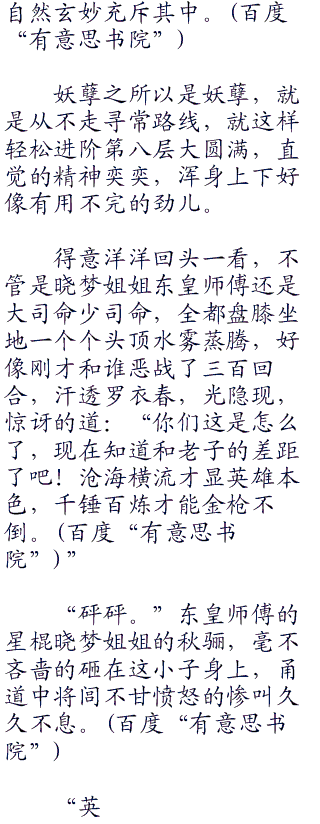 自然玄妙充斥其中。(百度
“有意思书院”)
妖孽之所以是妖孽，就
是从不走寻常路线，就这样
轻松进阶第八层大圆满，直
觉的精神奕奕，浑身上下好
像有用不完的劲儿。
得意洋洋回头一看，不
管是晓梦姐姐东皇师傅还是
大司命少司命，全都盘膝坐
地一个个头顶水雾蒸腾，好
像刚才和谁恶战了三百回
合，汗透罗衣春，光隐现，
惊讶的道：“你们这是怎么
了，现在知道和老子的差距
了吧！沧海横流才显英雄本
色，千锤百炼才能金枪不
倒。(百度“有意思书
院”)”
“砰砰。”东皇师傅的
星棍晓梦姐姐的秋骊，毫不
吝啬的砸在这小子身上，甬
道中将闾不甘愤怒的惨叫久
久不息。(百度“有意思书
院”)
“英